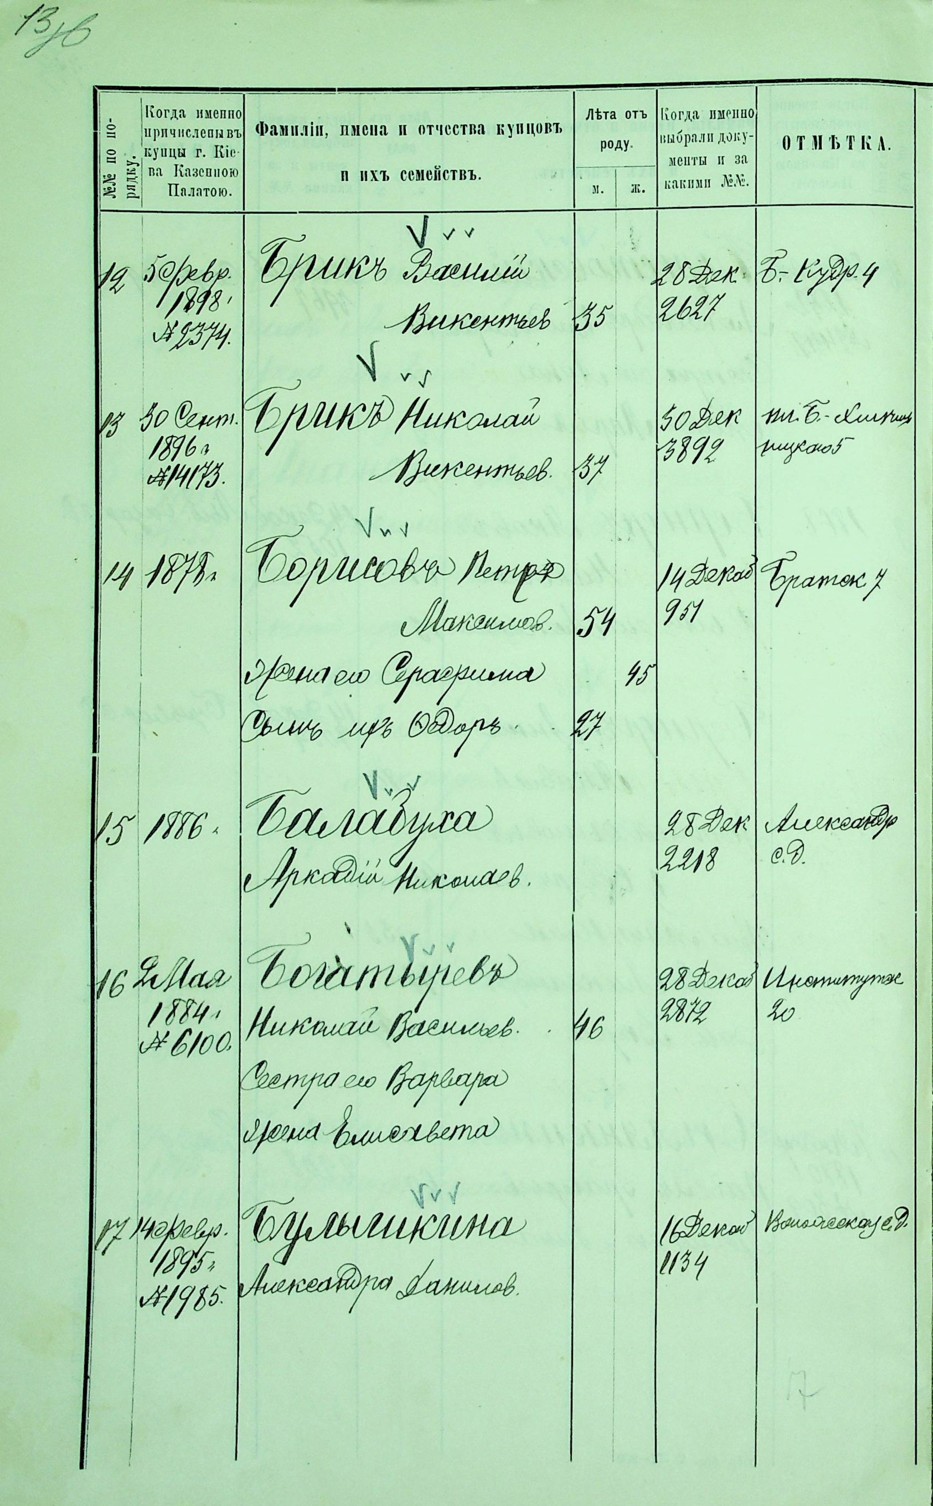 13
№№ по по-
рядку.
Когда именно
причислены въ
купцы г. Кіе-
ва Казенною
Палатою.
Фамиліи, имена и отчества купцовъ
и ихъ семействъ.
Лѣта отъ
роду.
м.
ж.
Когда именно
выбрали доку-
менты и за
какими №№.
ОТМѢТКА.
12 5 февр. Брикъ Василій 28 Дек. Б.-Кудр. 4
1898. Викентьев 35 2627
№ 2374.
13 30 Сент. Брикъ Николай 30 Дек пл. Б.-Хмель
1896. Викентьев. 37 3892 ницкаго 5
№ 14173.
14 1878. Борисовъ Петръ 14 Декаб Братск 7
Максимов. 54 951
Жена его Серафима 45
Сынъ ихъ Ѳедоръ 27
15 1886. Балабуха 28 Дек Александр
Аркадій Николаев. 2218 с.д.
16 2 Мая Богатыревъ 28 Декаб Институтск
1884. Николай Васильев. 46 2872 20
№ 6100.
Сестра его Варвара
Жена Елисавета
17 14 февр. Булышкина 16 Декаб с.д.
1895. Александра Данилов. 1134
№ 1985.
17